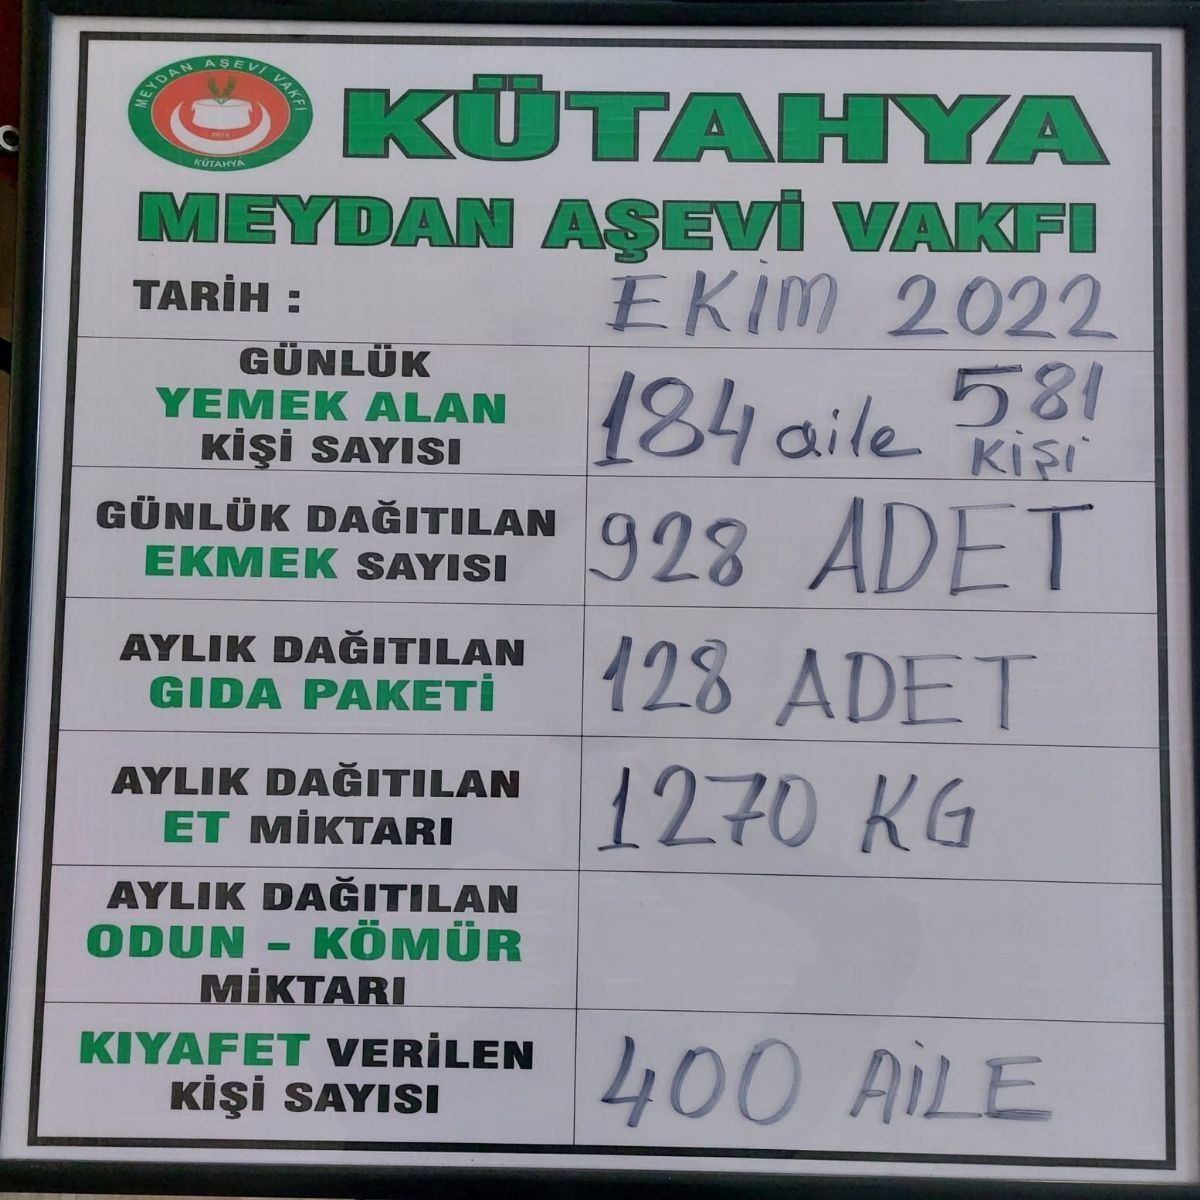 MEYDAN AŞEVİ VAKFI
KÜTAHYA
KÜTAHYA
MEYDAN AŞEVİ VAKFI
TARİH : EKİM 2022
GÜNLÜK
YEMEK ALAN
KİŞİ SAYISI
184 aile 581
KİŞİ
GÜNLÜK DAĞITILAN
EKMEK SAYISI
928 ADET
AYLIK DAĞITILAN
GIDA PAKETİ
128 ADET
AYLIK DAĞITILAN
ET MİKTARI
1270 KG
AYLIK DAĞITILAN
ODUN - KÖMÜR
MİKTARI
KIYAFET VERİLEN
KİŞİ SAYISI
400 AİLE